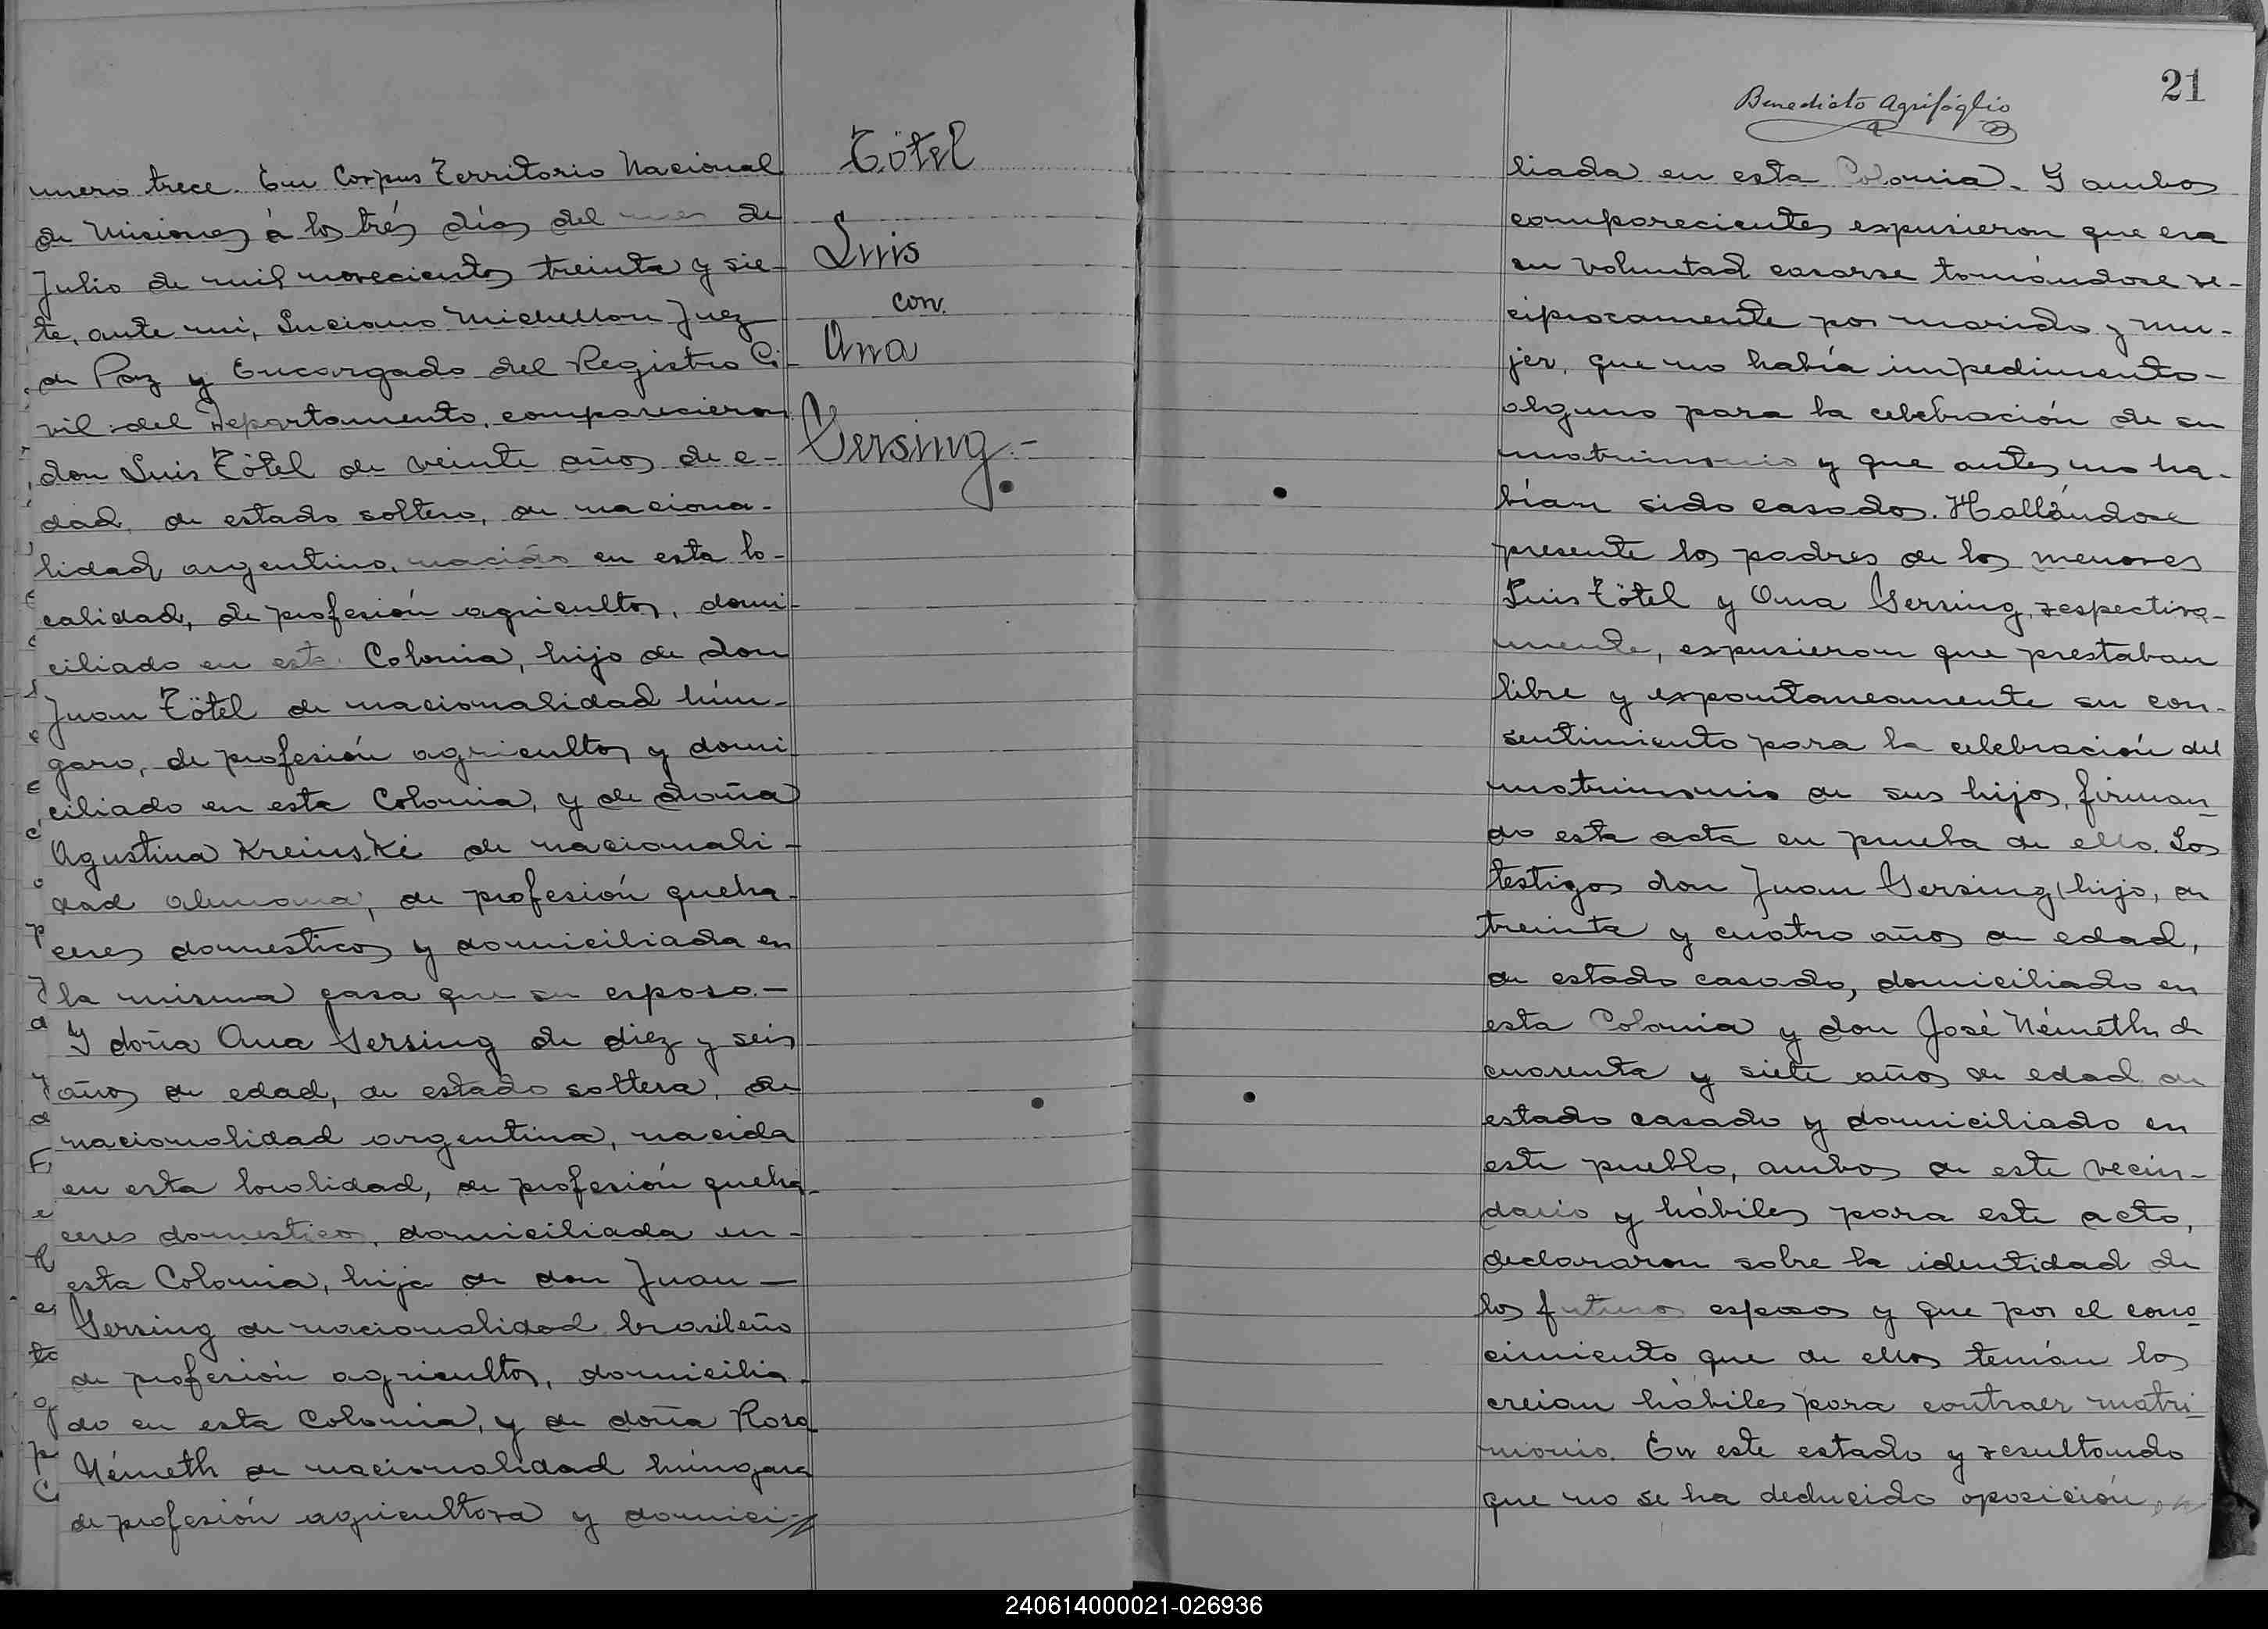 umero trece. En Corpus Territorio Nacional
de Misiones á los trés días del mes de
Julio de mil novecientos treinta y sie-
te, ante mí, Luciano Michellon Juez
de Paz y Encargado del Registro Ci-
vil del Departamento, comparecieron
don Luis Tötel de veinte años de e-
dad, de estado soltero, de naciona-
lidad argentino, nacido en esta lo-
calidad, de profesión agricultor, domi-
ciliado en esta Colonia, hijo de don
Juan Tötel de nacionalidad hún-
garo, de profesión agricultor y domi-
ciliado en esta Colonia, y de doña
Agustina Kreinski de nacionali-
dad alemana, de profesión queha-
ceres domesticos y domiciliada en
la misma casa que su esposo.-
Y doña Ana Gersing de diez y seis
años de edad, de estado soltera, de
nacionalidad argentina, nacida
en esta localidad, de profesión queha-
ceres domestico, domiciliada en-
esta Colonia, hija de don Juan-
Gersing de nacionalidad brasileño
de profesión agricultor, domicilia-
do en esta Colonia, y de doña Rosa
Németh de nacionalidad húngara
de profesión agricultora y domici-
Tötel
Luis
con
Ana
Gersing.-
21
Benedicto Agrifóglio
liada en esta Colonia. Y ambos
comparecientes expusieron que era
su voluntad casarse tomándose re-
ciprocamente por marido y mu-
jer, que no había impedimento-
alguno para la celebración de su
matrimonio y que antes no ha-
bían sido casados. Hallándose
presente los padres de los menores
Luis Tötel y Ana Gersing, respectiva-
mente, expusieron que prestaban
libre y expontaneamente su con-
sentimiento para la celebración del
matrimonio de sus hijos, firman-
do esta acta en prueba de ello. Los
testigos don Juan Gersing (hijo, de
treinta y cuatro años de edad,
de estado casado, domiciliado en
esta Colonia y don José Németh de
cuarenta y siete años de edad de
estado casado y domiciliado en
este pueblo, ambos de este vecin-
dario y hábiles para este acto,
declararon sobre la identidad de
los futuros esposos y que por el cono-
cimiento que de ellos tenían los
creían hábiles para contraer matri-
monio. En este estado y resultando
que no se ha deducido oposición,
240614000021-026936